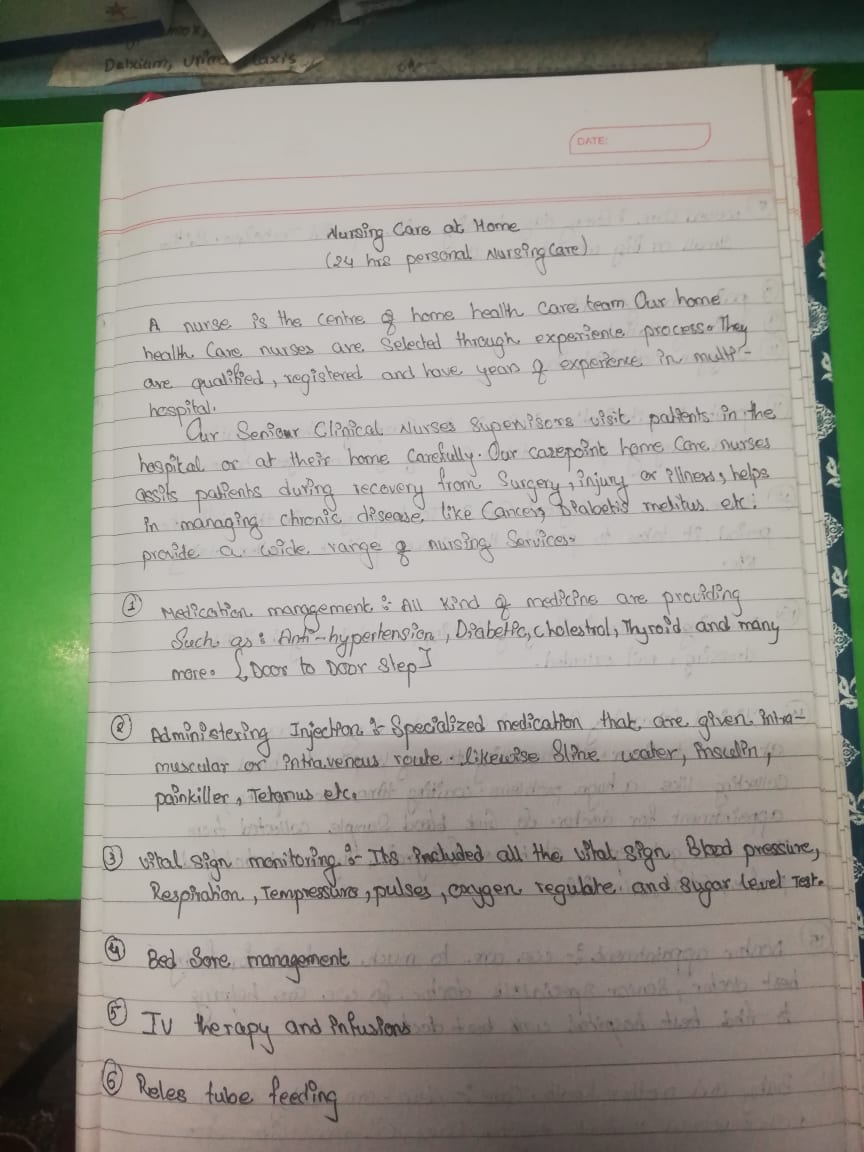 Delxium,
DATE:
Nursing Care at Home
(24 hrs personal Nursing Care)
A nurse is the centre of home health care team Our home
health Care nurses are Selected through experience process. They
are qualified, registered and have years of experience in multi-
hospital.
Our Seniour Clinical Nurses Supervisors visit patients in the
hospital or at their home Carefully. Our carepoint home Care nurses
assits patients during recovery from Surgery, injury or illness, helps
in managing chronic disease like Cancer, Diabetis melitus etc.
provide a wide range of nuising Services.
① Medication management :- All Kind of medicine are providing
Such as : Anti-hypertension, Diabetic, cholestrol, Thyroid and many
more. [Door to Door Step]
② Administering Injection :- Specialized medication that are given intra-
muscular or intravenous route. likewise Sline water, insulin,
painkiller, Tetanus etc.
③ Vital Sign monitoring :- Its included all the vital sign Blood pressure,
Respiration, Tempressure, pulses, oxygen regulate and Sugar level Test.
④ Bed Sore management
⑤ IV therapy and infusions
⑥ Reles tube feeding